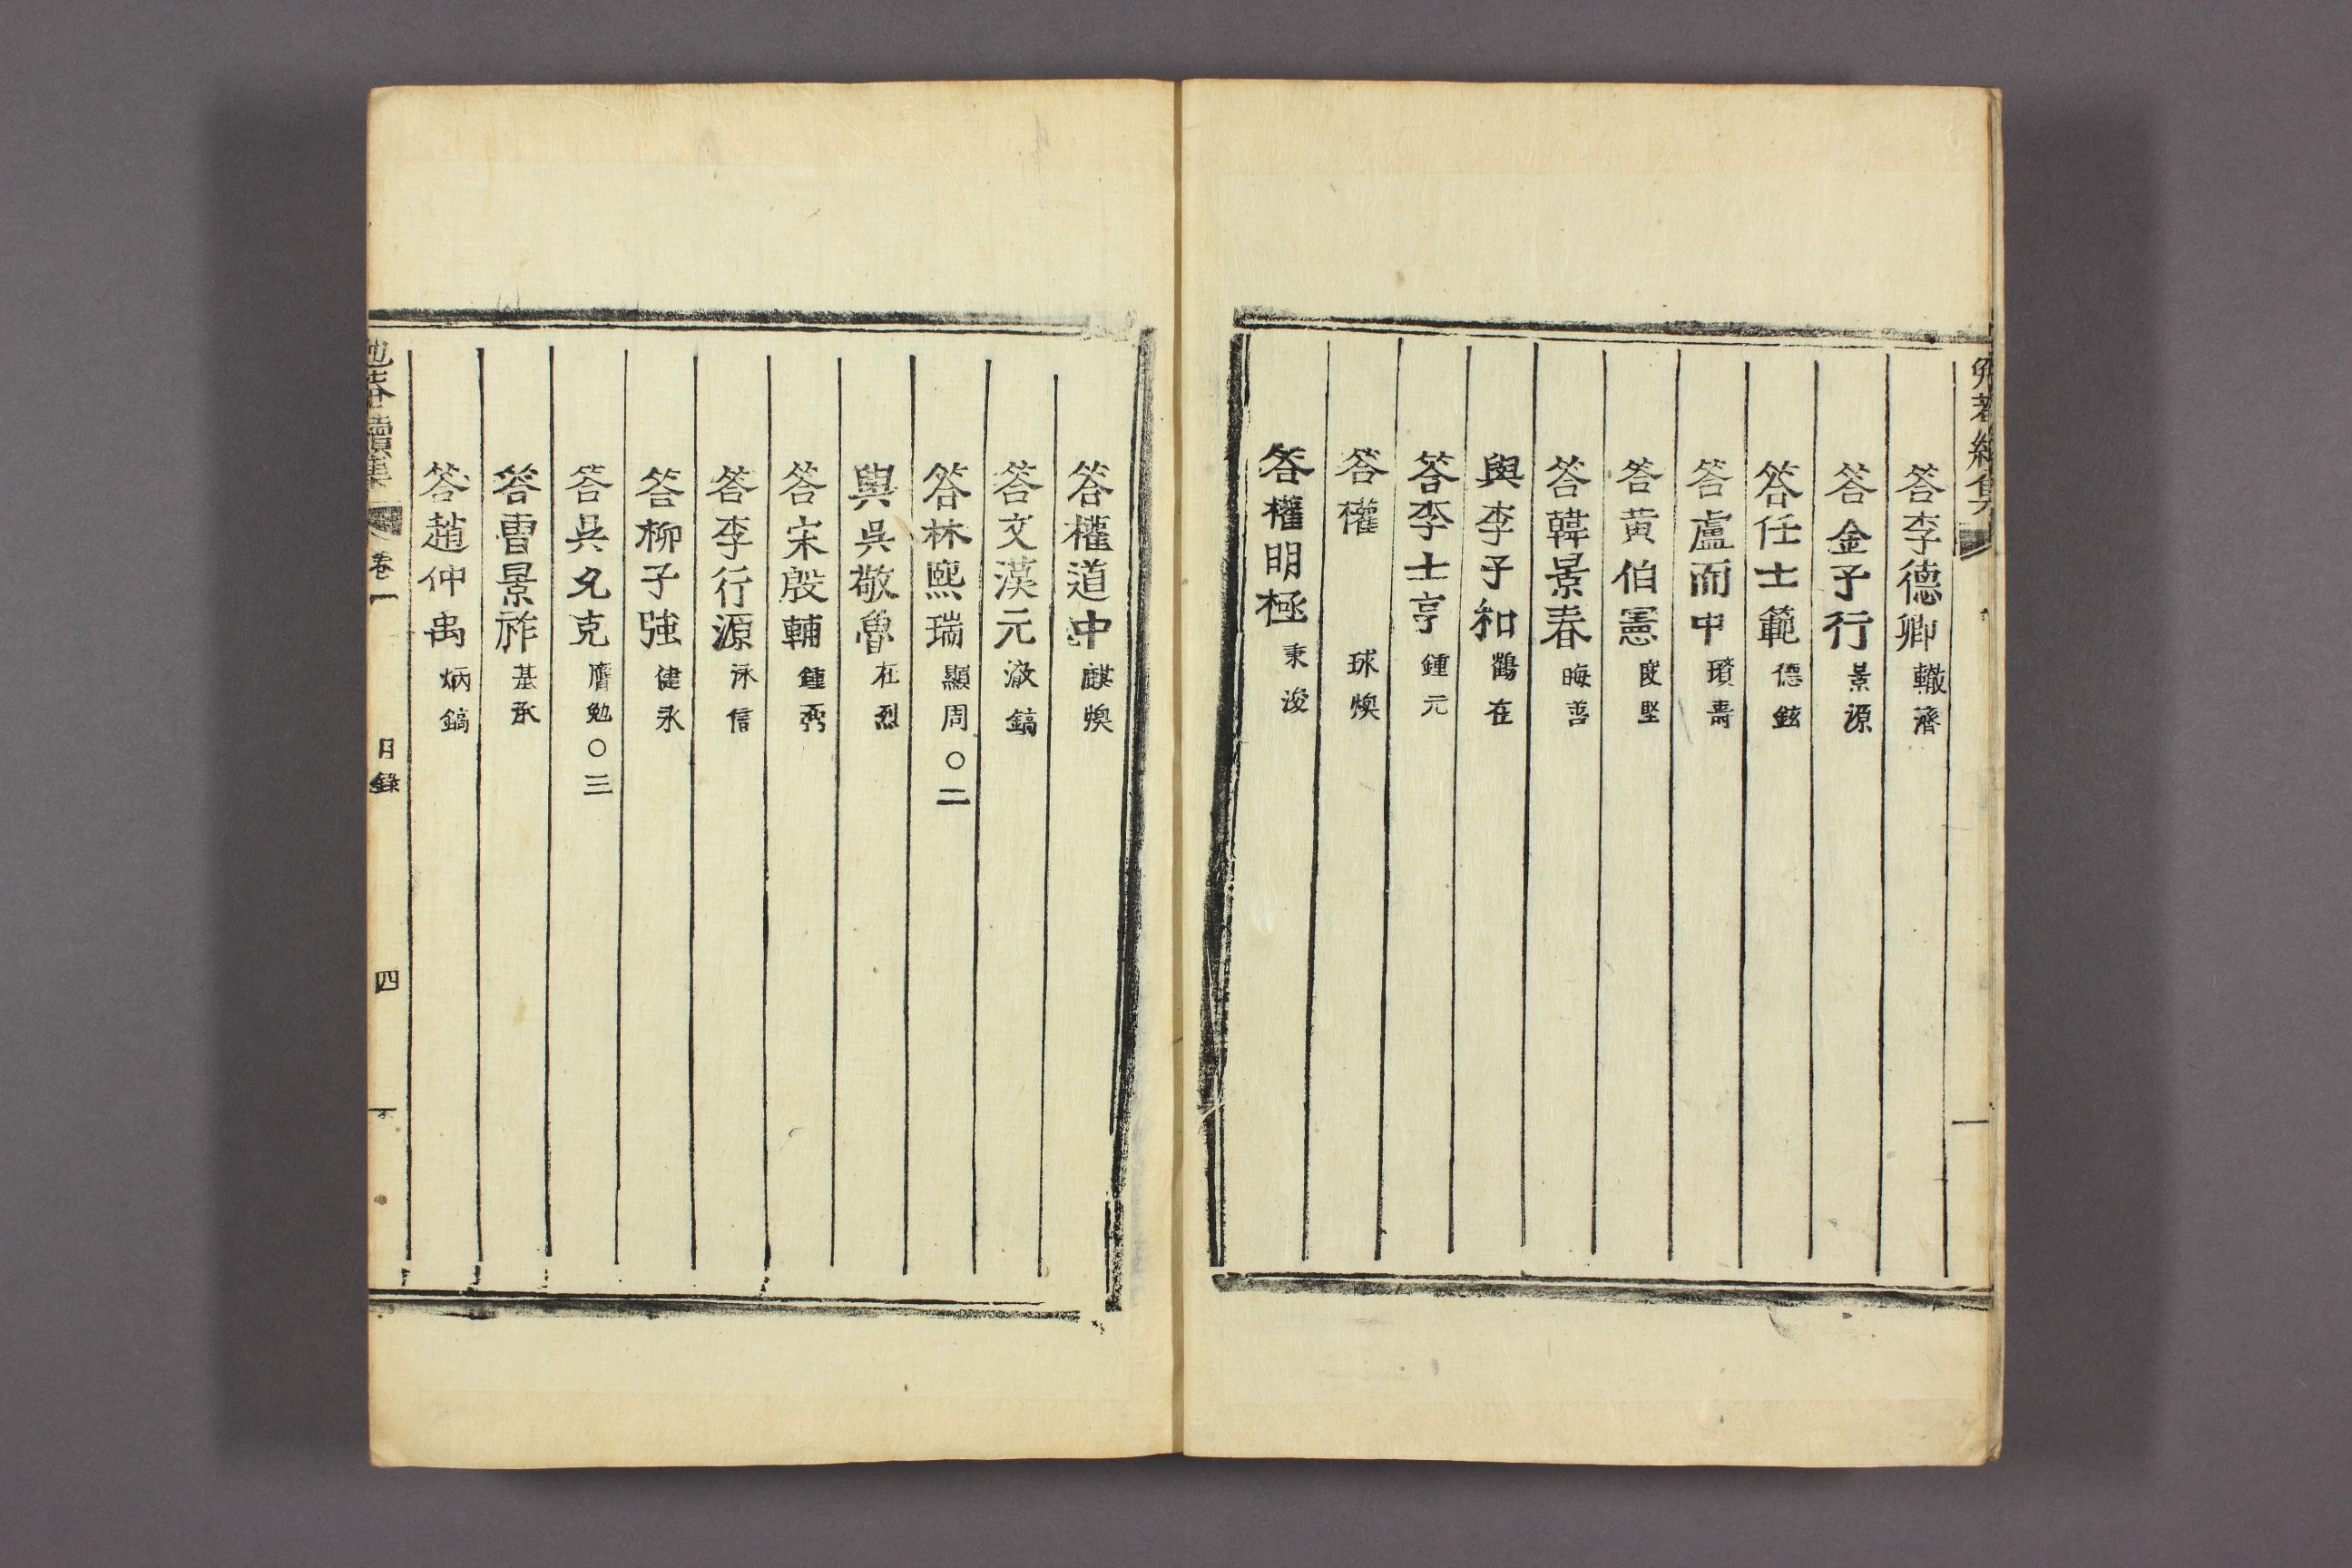 答李德卿 轍濟
答金子行 景源
答任士範 德鉉
答盧而中 璸壽
答黃伯憲 度堅
答韓景春 晦善
與李子和 鶴在
答李士亨 鍾元
答權 球煥
答權明極 秉浚
答權道中 麒煥
答文漢元 澂鎬
答林熙瑞 顯周○二
與吳敬魯 在烈
答宋殷輔 鍾弼
答李行源 泳信
答柳子強 健永
答吳允克 膺勉○三
答曺景祚 基承
答趙仲禹 炳鎬
續集 卷一 目錄 四